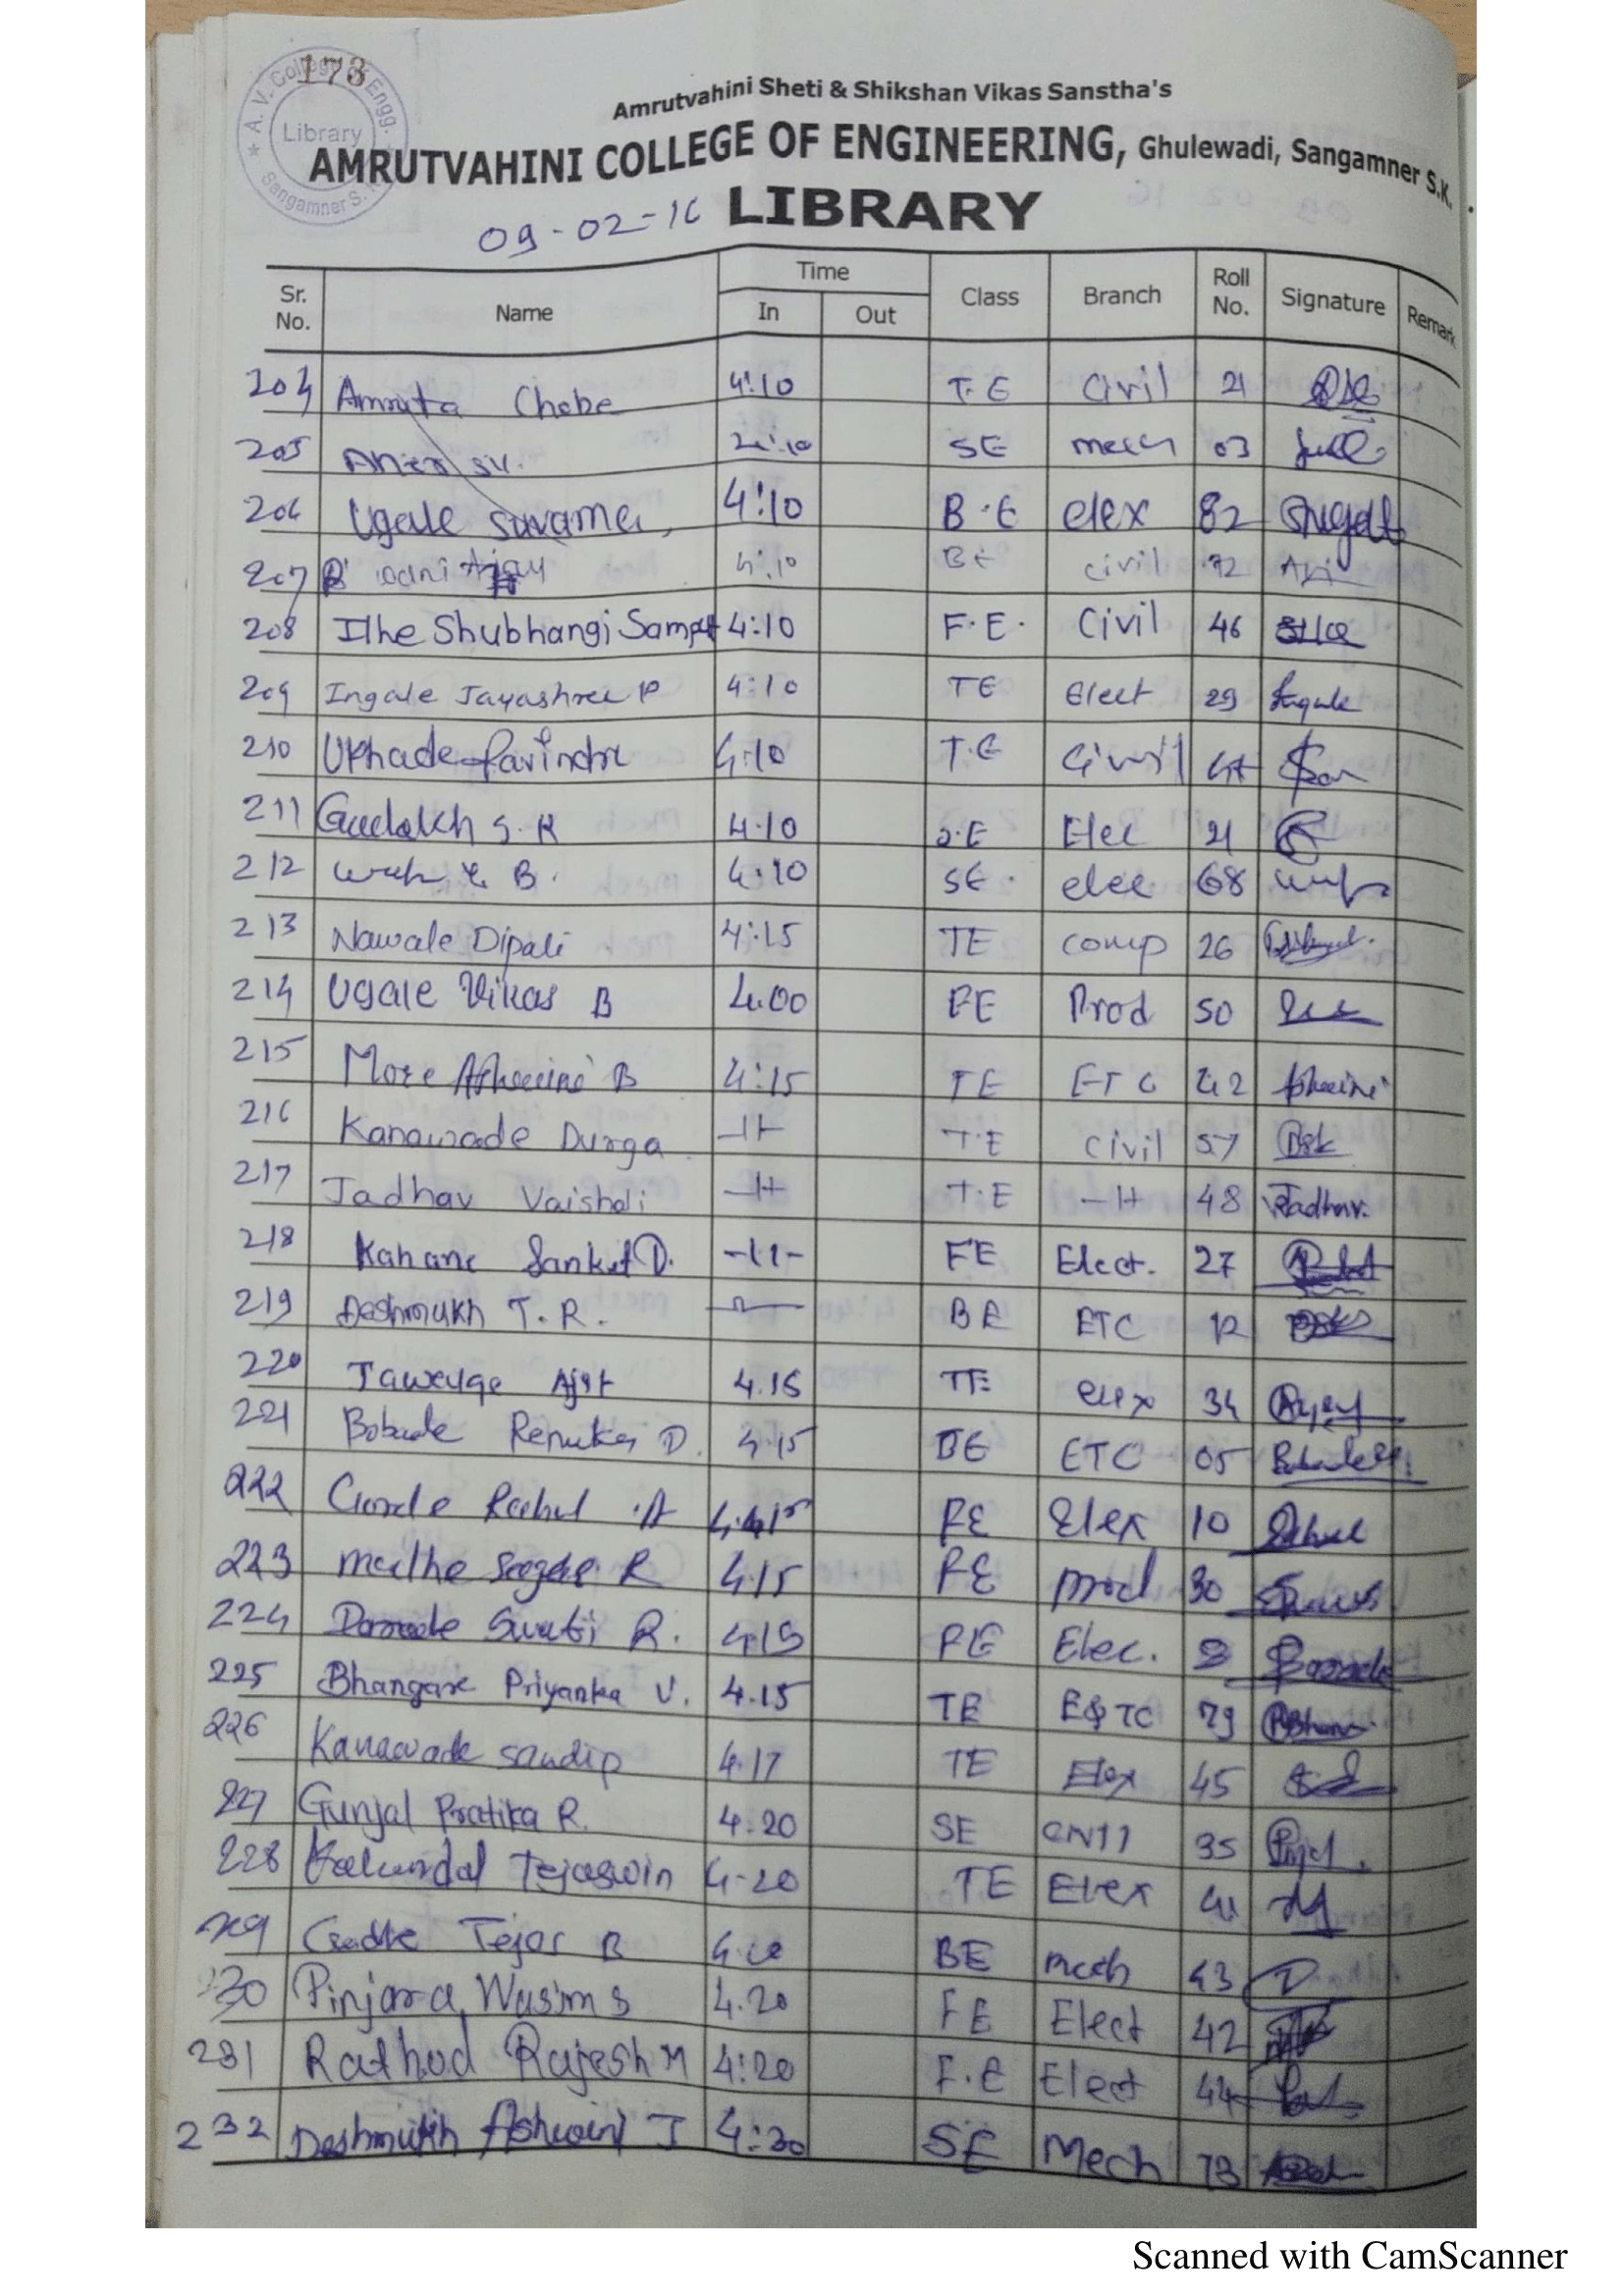 173
A. V. College of Engg.
Library
Sangamner S.K.
Amrutvahini Sheti & Shikshan Vikas Sanstha's
AMRUTVAHINI COLLEGE OF ENGINEERING, Ghulewadi, Sangamner S.K.
09-02-16 LIBRARY
Sr. No. Name Time In Out Class Branch Roll No. Signature Remark
204 Amruta Chobe 4:10 T.E Civil 21
205 4:10 SE mech 03
206 Ugale 4:10 B.E elex 82
207 4:10 BE civil 72
208 Ilhe Shubhangi Sampat 4:10 F.E. Civil 46
209 Ingale Jayashree P 4:10 TE Elect 29 Ingale
210 Ukhade Ravindra 4:10 T.E Civil
211 S. K 4.10 S.E Elec 21
212 B. 4:10 SE. elec 68
213 Nawale Dipali 4:15 TE comp 26
214 Ugale Vikas B 4.00 FE Prod 50
215 More Ashwini B 4:15 TE ETC 42 Ashwini
216 Kanawade Durga -11- T.E civil 57
217 Jadhav Vaishali -11- T.E -11- 48 Jadhav.
218 Kahane Sanket D. -11- FE Elect. 27
219 Deshmukh T. R. BE ETC 12
220 4.15 TE elex 34
221 Bobade Renuka D. 4.15 BE ETC 05
222 4.15 FE Elex 10
223 R 4.15 FE prod 30
224 Swati R. 4.15 FE Elec. 8
225 Bhangare Priyanka V. 4.15 TE E&TC 79
226 Kanawade sandip 4.17 TE Elex 45
227 Gunjal Pratika R. 4.20 SE 35
228 Tejaswin 4-20 TE Elex 41
229 Tejas B BE mech 43
230 Pinjara Wasim S 4.20 FE Elect 42
231 Rathod Rajesh M 4:20 F.E Elect 44
232 Deshmukh Ashwini J 4:30 SE Mech 73
Scanned with CamScanner